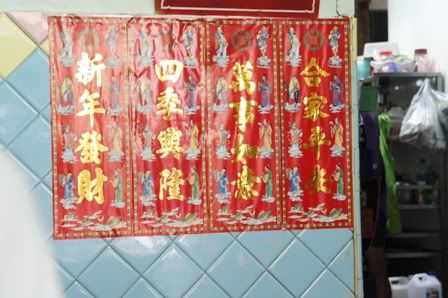 新年發財
四季興隆
萬事如意
合家平安